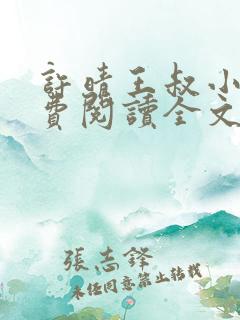 許晴王叔小
費閱讀全文
張志鋒
未经同意禁止转载